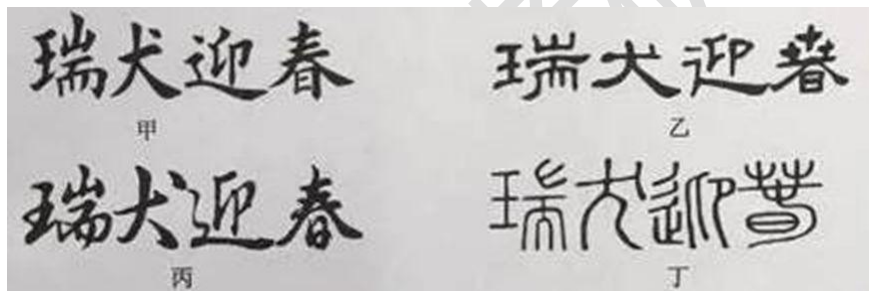 瑞犬迎春
甲
瑞犬迎春
乙
瑞犬迎春
丙
瑞犬迎春
丁